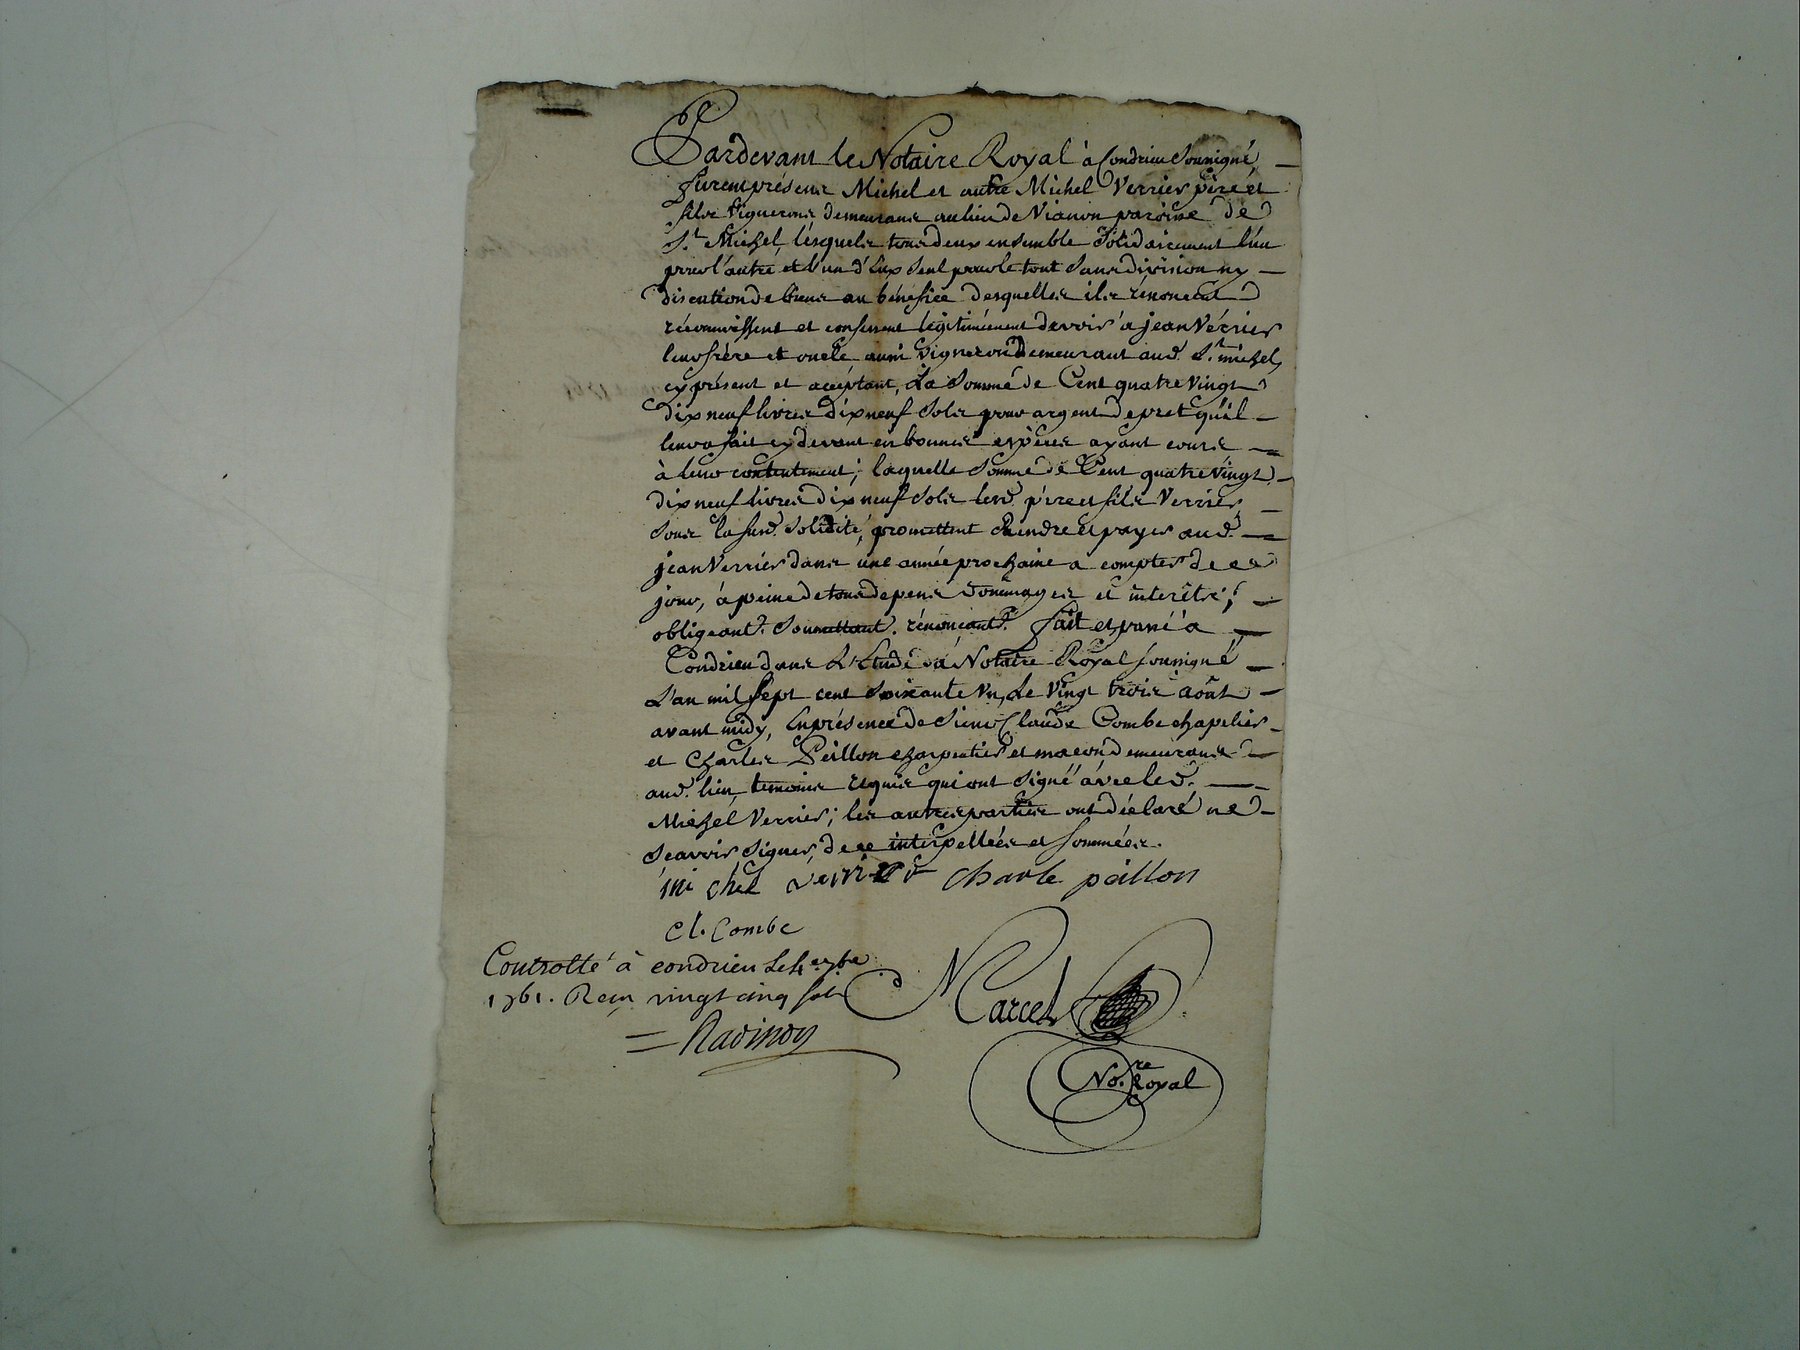 Pardevant le Notaire Royal à Condrieu Soussigné
furent présens Michel et autre Michel Verrier père et
fils Vignerons demeurans au lieu de Vianon paroisse de
S.t Michel, lésquels tous deux ensemble Solidairement l'un
pour l'autre et l'un d'Eux Seul pour le tout Sans division ny
discution de biens au bénéfice desquelles ils rénoncent
réconnoissent et confessent légitimément devoir à jean Vérrier
leur frère et oncle aussi Vigneron demeurant aud. S.t michel,
cy présent et accéptant, La Sommé de Cent quatre Vingt
dix neuf livres dix neuf Sols pour argent de pret qu'il
leur a fait cy devant en bonnes espèces ayant cours
à leur contentement; laquelle Sommé de Cent quatre Vingt
dix neuf livres dix neuf Sols lesd. père et fils Verrier,
Sous la susd. Solidité, promettent Rendre et payer aud.
jean Verrier dans une année prochaine a compter de ce
jour, à peine de tous depens dommages et interêts;
obligeant. Soumettant. rénonçant. fait et passé à
Condrieu dans L'Etude du Notaire Royal soussigné
L'an mil sept cent Soixante Un, Le Vingt trois août
avant midy, En présence de Sieur Claude Combe chapelier
et Charles Peillon charpentier et maçon demeurans
aud. lieu, temoins requis qui ont Signé avec led.
Michel Verrier; les autres parties ont déclaré ne
Scavoir Signer, de ce interpellées et sommées.
mi chel verrier charle peillon
cl. Combe
Controllé à condrieu Le 4.e 7bre
1761. Reçu vingt cinq sols
Marcel
No.re Royal